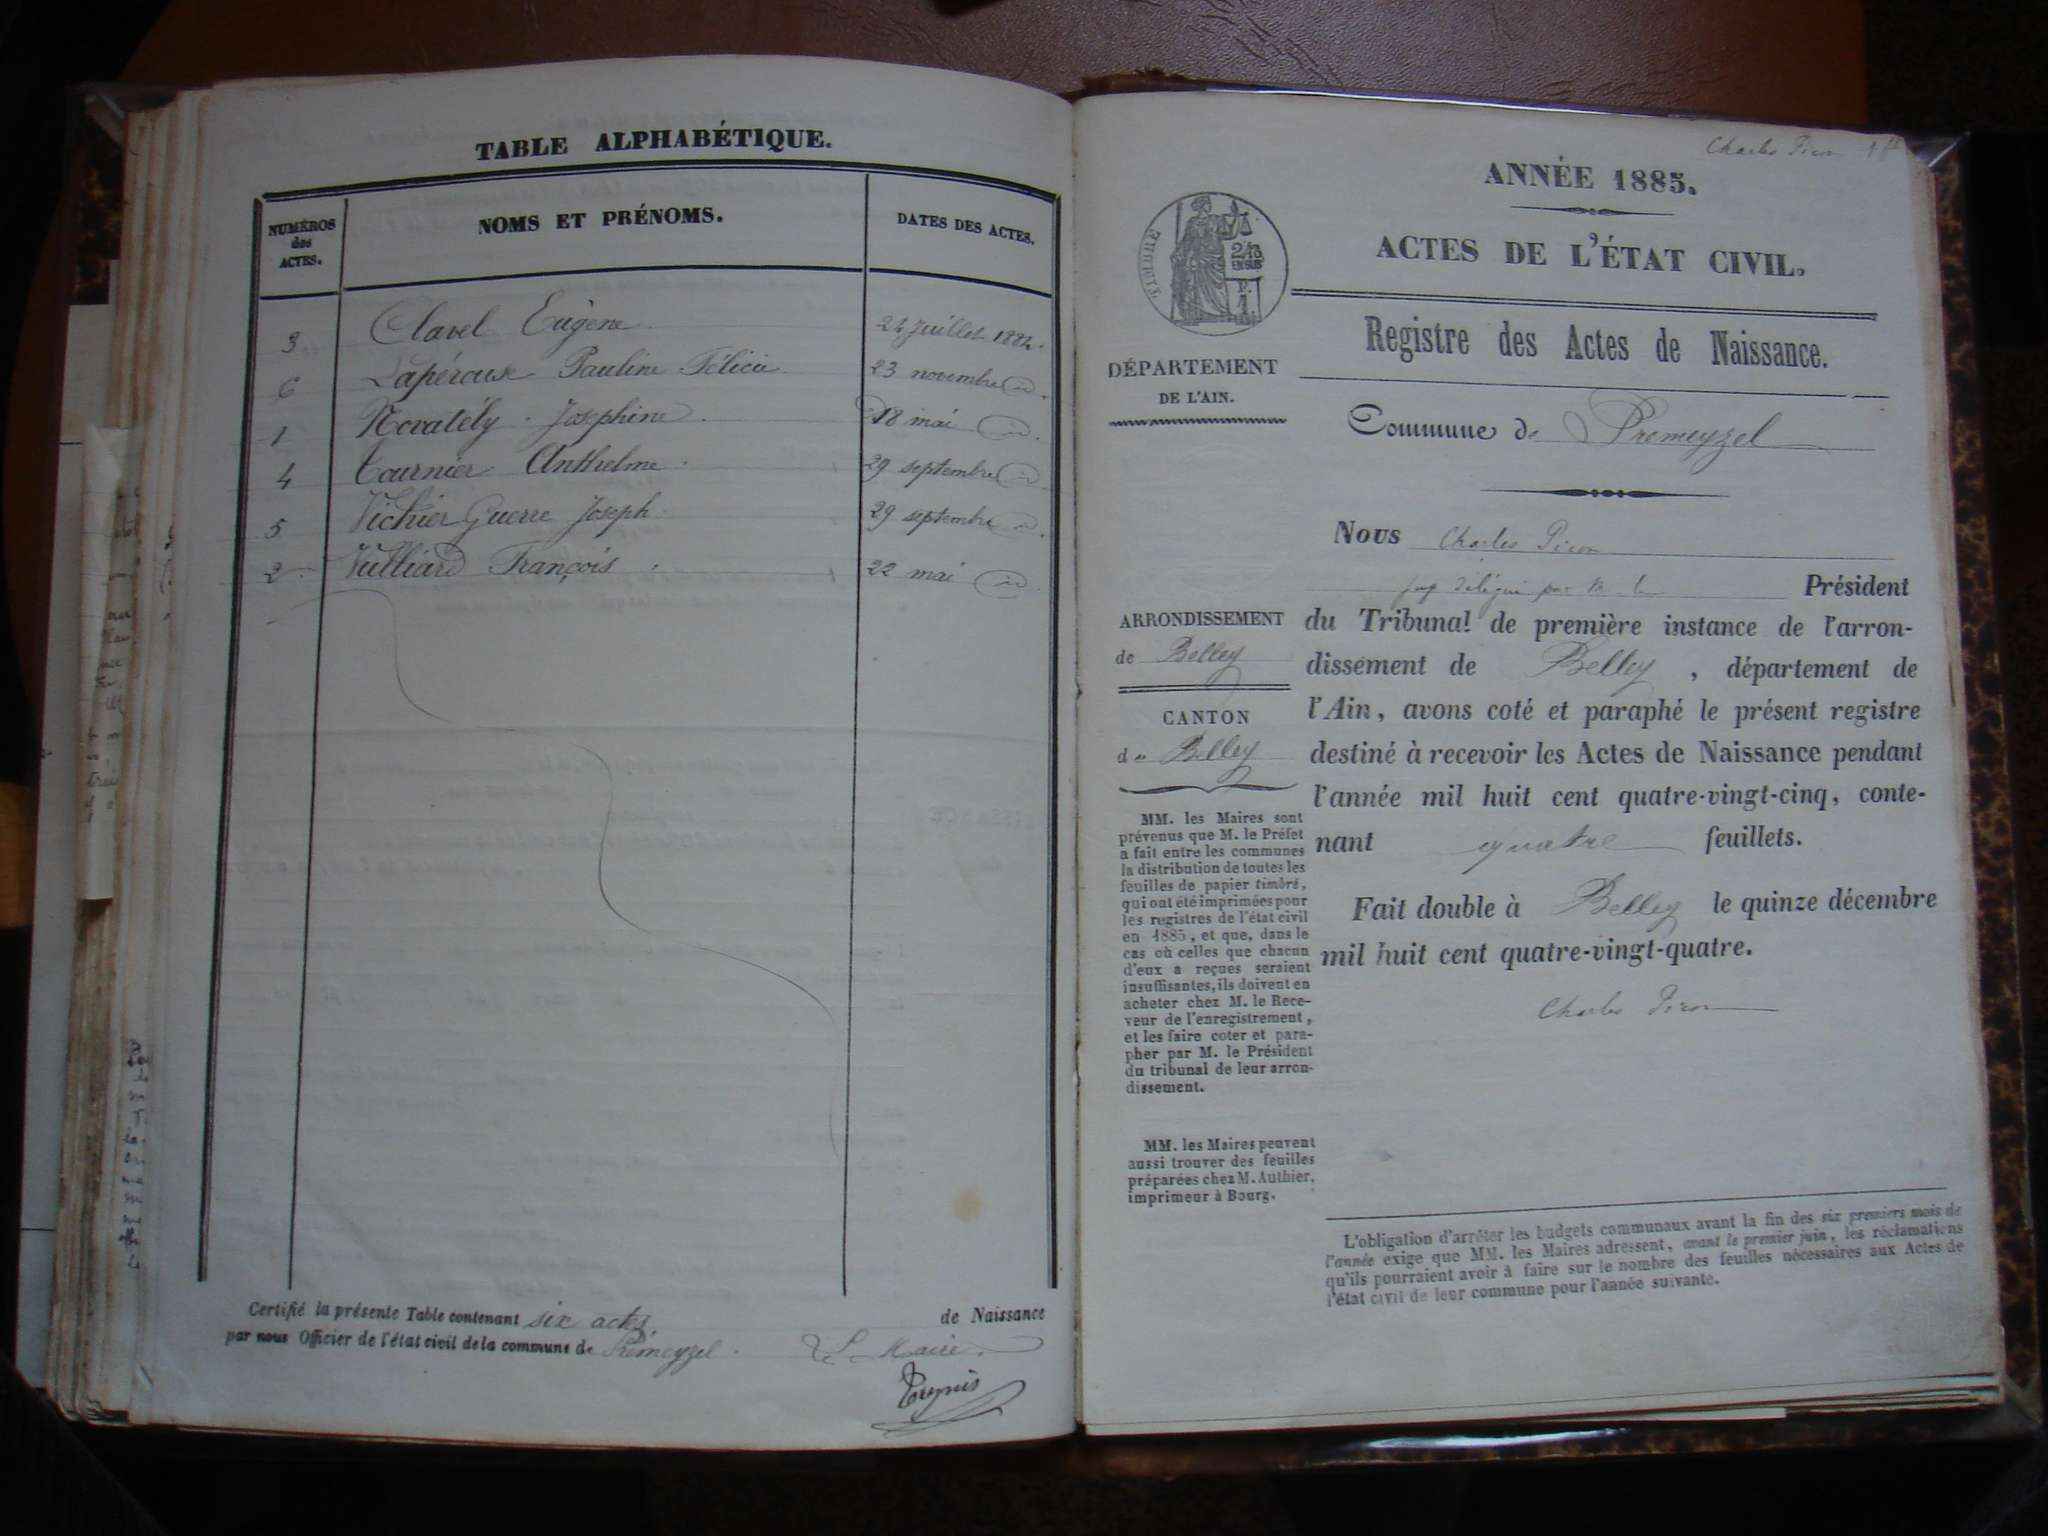 TABLE ALPHABÉTIQUE.
NUMÉROS des ACTES. NOMS ET PRÉNOMS. DATES DES ACTES.
3 Clavel Eugène 24 Juillet 1884.
6 Lapérouse Pauline Félicie 23 novembre id.
1 Novatély Joséphine. 18 mai id.
4 Tournier Anthelme. 29 septembre id.
5 Vichier Guerre Joseph. 29 septembre id.
2 Vulliard François. 22 mai id.
Certifié la présente Table contenant six actes de Naissance
par nous Officier de l'état civil de la commune de Prémeyzel.
Le Maire.
Charles Picon
ANNÉE 1885.
ACTES DE L'ÉTAT CIVIL.
TIMBRE
2/10
EN SUS
1
Registre des Actes de Naissance.
DÉPARTEMENT
DE L'AIN.
Commune de Premeyzel
Nous Charles Picon
juge délégué par M. le Président
ARRONDISSEMENT
de Belley
CANTON
de Belley
du Tribunal de première instance de l'arron-
dissement de Belley, département de
l'Ain, avons coté et paraphé le présent registre
destiné à recevoir les Actes de Naissance pendant
l'année mil huit cent quatre-vingt-cinq, conte-
nant quatre feuillets.
Fait double à Belley le quinze décembre
mil huit cent quatre-vingt-quatre.
Charles Picon
MM. les Maires sont
prévenus que M. le Préfet
a fait entre les communes
la distribution de toutes les
feuilles de papier timbré,
qui ont été imprimées pour
les registres de l'état civil
en 1885, et que, dans le
cas où celles que chacun
d'eux a reçues seraient
insuffisantes, ils doivent en
acheter chez M. le Rece-
veur de l'enregistrement,
et les faire coter et para-
pher par M. le Président
du tribunal de leur arron-
dissement.
MM. les Maires peuvent
aussi trouver des feuilles
préparées chez M. Authier,
imprimeur à Bourg.
L'obligation d'arrêter les budgets communaux avant la fin des six premiers mois de
l'année exige que MM. les Maires adressent, avant le premier juin, les réclamations
qu'ils pourraient avoir à faire sur le nombre des feuilles nécessaires aux Actes de
l'état civil de leur commune pour l'année suivante.